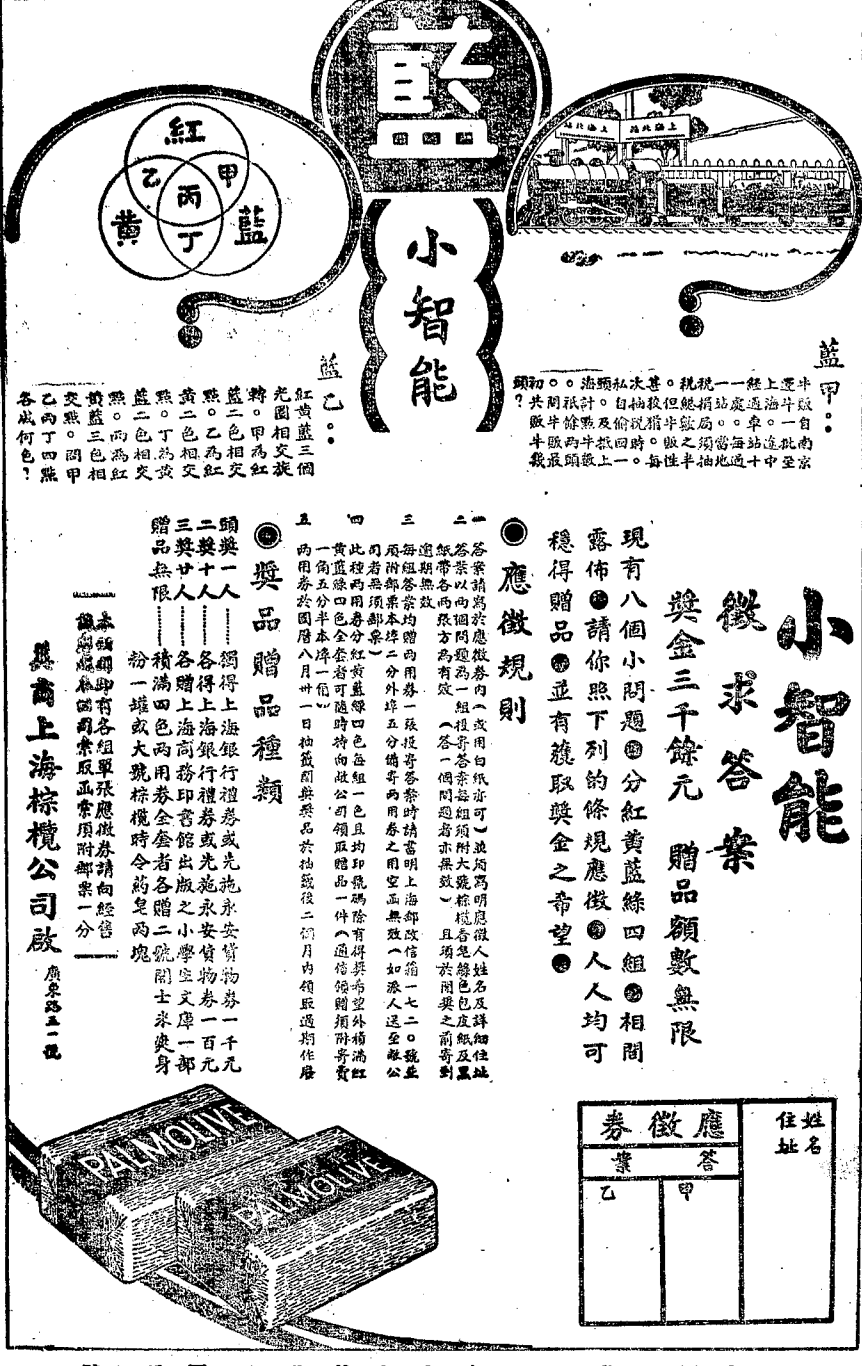 藍
小智能
上海北站
上海北站
藍甲：
牛販自南京
運牛一批至
上海。途中
經過車站十
一處。每過
一站。當地
稅捐局須抽
稅鯤數之半
。但牛販性
甚狡猾。每
次抽稅時。
私自偷回一
頭。及抵上
海計點牛數
。祇餘兩頭
。問牛販最
初共販牛幾
頭？
藍乙：
紅黃藍三個
光圈相交旋
轉。甲為紅
藍二色相交
點。乙為紅
黃二色相交
點。丁為黃
藍二色相交
點。丙為紅
黃藍三色相
交點。問甲
乙丙丁四點
各成何色？
紅
黃
藍
甲
乙
丙
丁
小智能
徵求答案
獎金三千餘元　贈品額數無限
現有八個小問題分紅黃藍綠四組相間
露佈請你照下列的條規應徵人人均可
穩得贈品並有獲取獎金之希望
應徵規則
一　答案請寫於應徵券內（或用白紙亦可）並須寫明應徵人姓名及詳細住址
二　答案以兩個問題為一組投寄答案每組須附大號棕欖香皂綠色包皮紙及黑
紙帶各兩張方為有效（答一個問題者亦無效）且須於開獎之前寄到
逾期無效
三　每組答案均贈兩用券一張投寄答案時請書明上海郵政信箱一七二〇號並
須附郵票本埠二分外埠五分備寄兩用券之用空函無效（如派人送至敝公
司者無須郵票）
四　此種兩用券分紅黃藍綠四色每組一色且均印號碼除有得獎希望外積滿紅
黃藍綠四色全套者可隨時持向敝公司領取贈品一件（通信領贈須附寄費
一角五分半本埠一角）
五　兩用券於國曆八月卅一日抽籤開獎獎品於抽籤後二個月內領取過期作廢
獎品贈品種類
頭獎一人……獨得上海銀行禮券或先施永安貨物券一千元
二獎十人……各得上海銀行禮券或先施永安貨物券一百元
三獎廿人……各贈上海商務印書館出版之小學生文庫一部
贈品無限……積滿四色兩用券全套者各贈二號開士米爽身
粉一罐或大號棕欖時令葯皂兩塊
本公司印有各組單張應徵券請向經售
索取函索須附郵票一分
美商上海棕欖公司啟　廣東路五一號
姓名
住址
應徵券
答案
甲
乙
PALMOLIVE
PALMOLIVE